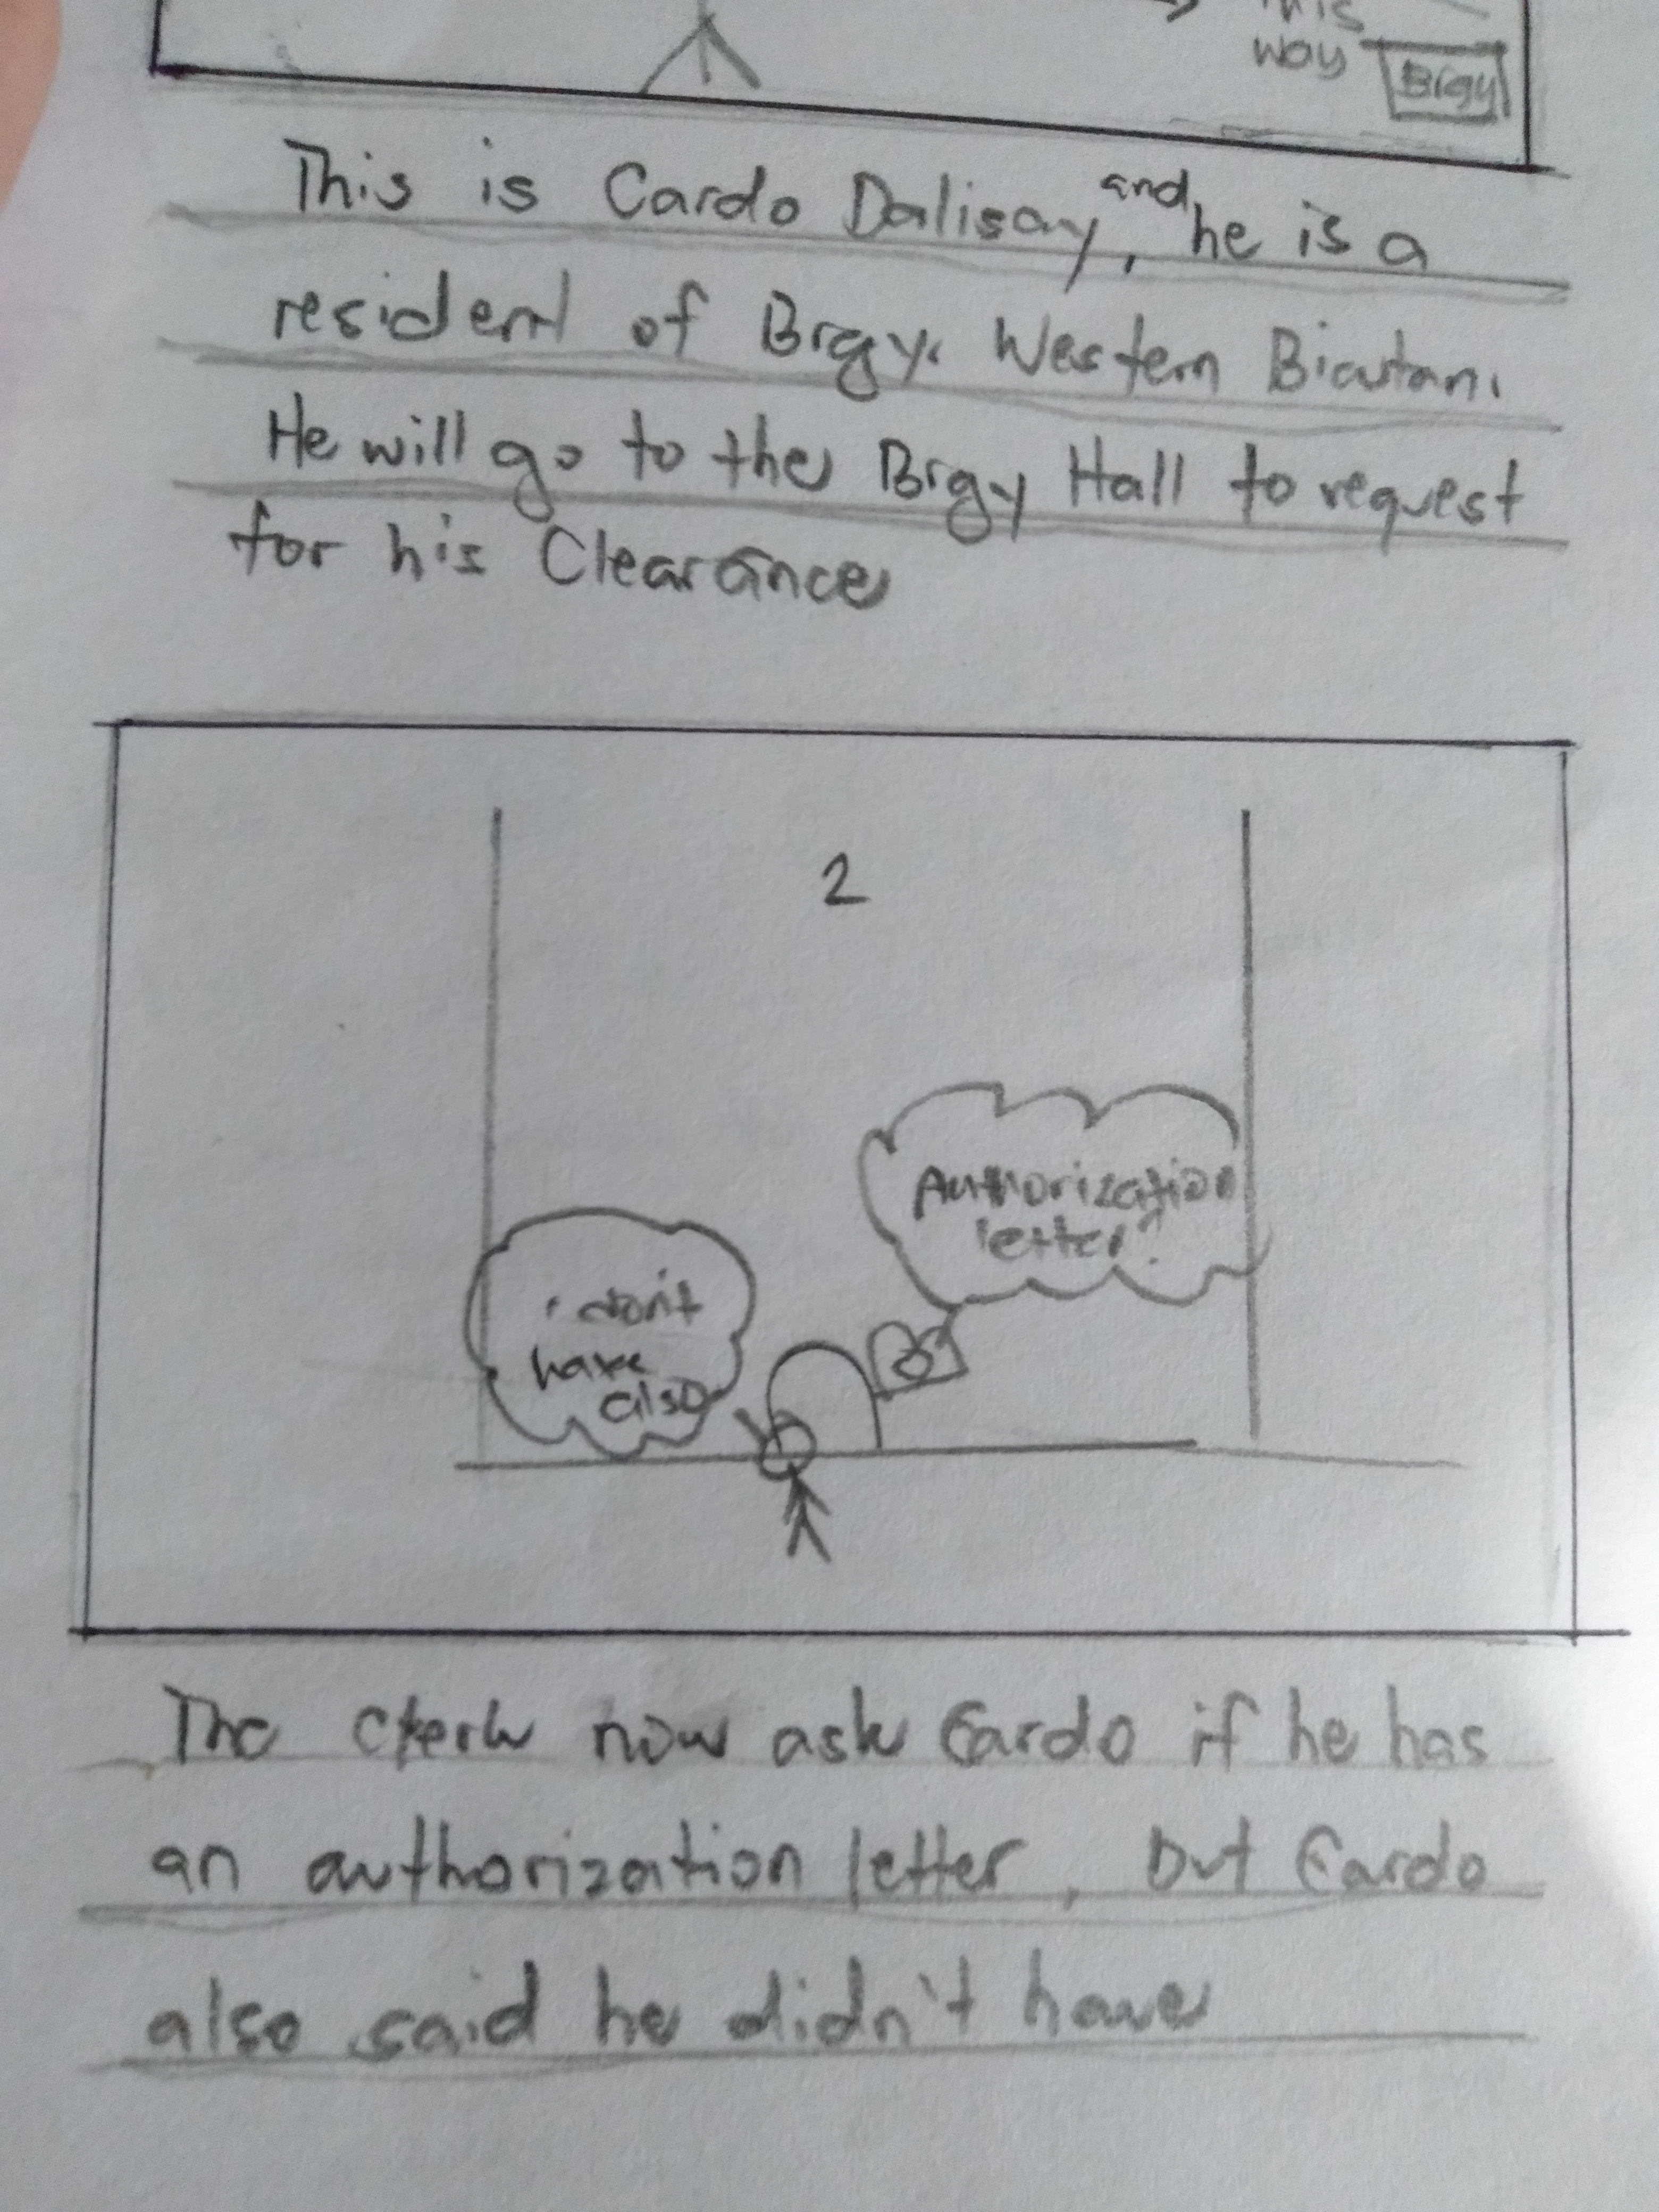 this
way
Brgy
This is Cardo Dalisay, and he is a
resident of Brgy. Western Bicutan.
He will go to the Brgy Hall to request
for his Clearance
2
Authorization
letter?
i don't
have
also
The Clerk now ask Cardo if he has
an authorization letter, but Cardo
also said he didn't have